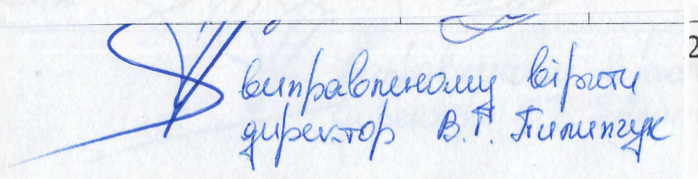 виправленому вірити
директор В.Г. Пилипчук
2